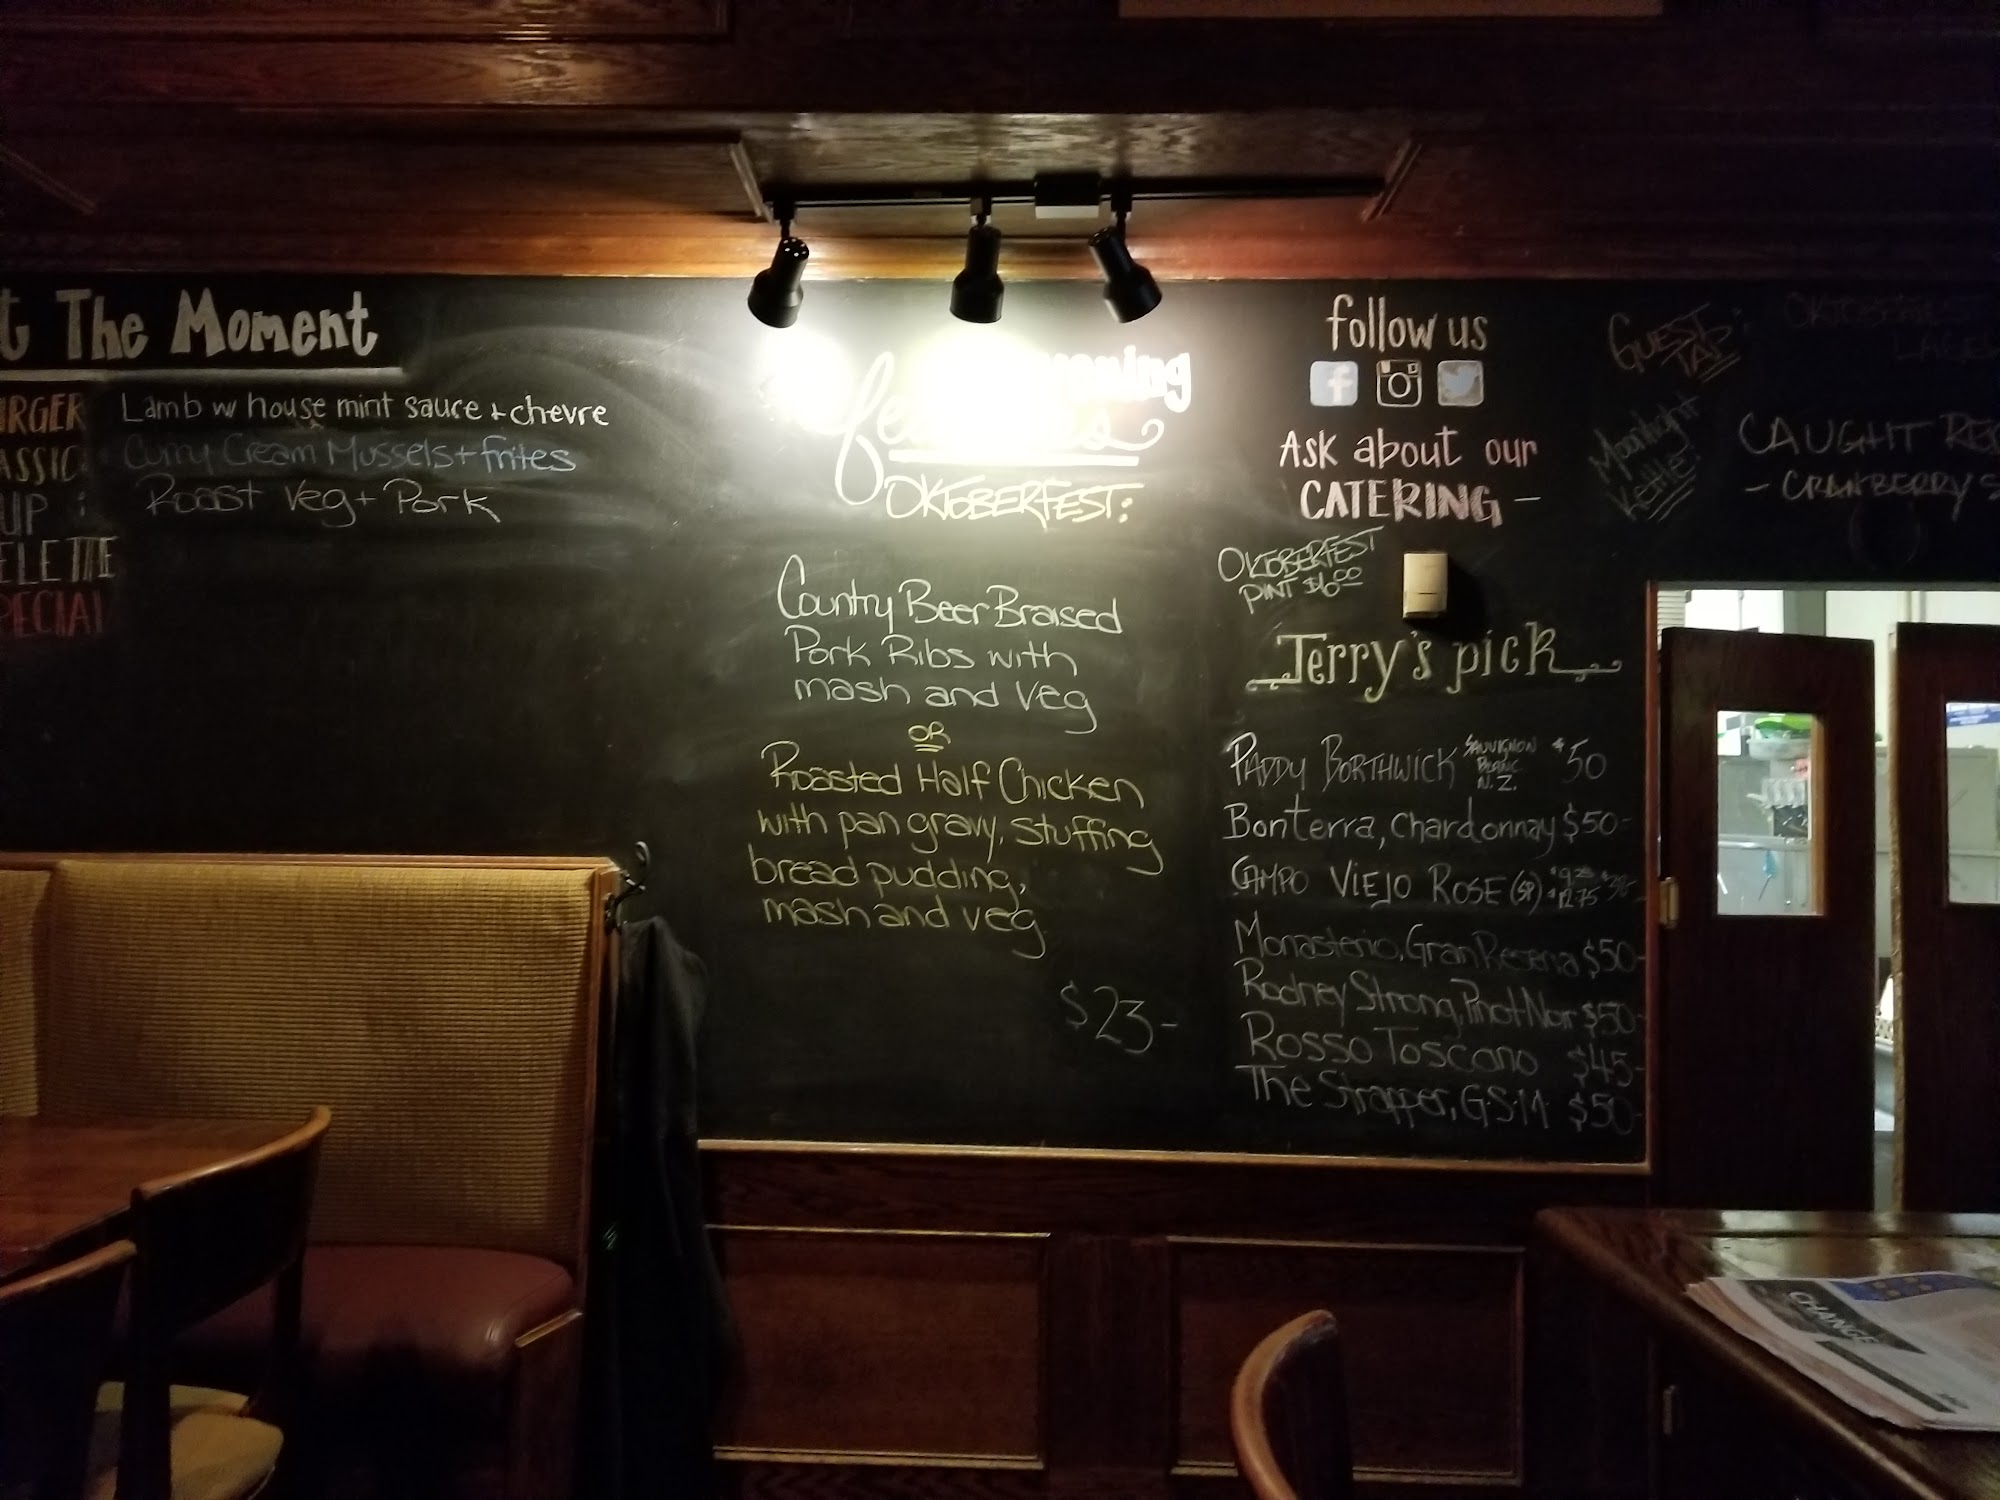 The Moment
Lamb w house mint sauce + chevre
Curry Cream Mussels + frites
Roast Veg + Pork
OKTOBERFEST:
Country Beer Braised
Pork Ribs with
mash and Veg
OR
Roasted Half Chicken
with pan gravy, stuffing
bread pudding,
mash and veg
$23-
follow us
Ask about our
CATERING -
OKTOBERFEST
PINT $6.00
Jerry's pick
PADDY BORTHWICK SAUVIGNON BLANC N.Z. $50
Bonterra, Chardonnay $50-
CAMPO VIEJO ROSE (SP)
Monasterio, Gran Reserva $50-
Rodney Strong, Pinot Noir $50-
Rosso Toscano $45-
The Strapper, G.S.M $50-
GUEST TAP:
OKTOBERFEST
Moonlight
Kettle:
CAUGHT
- CRANBERRY
CHANGE